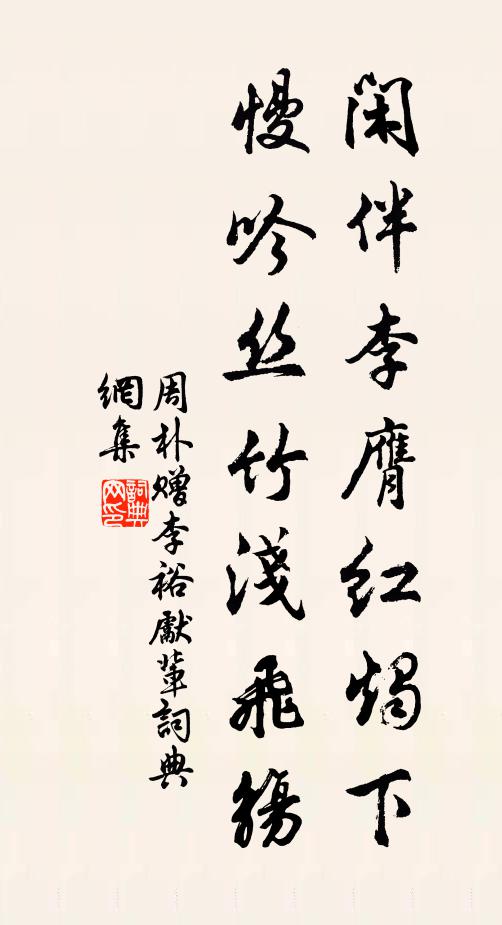 闲伴李膺红烛下
慢吟丝竹浅飞觞
周朴赠李裕献辈詞典
網集
詞典网印